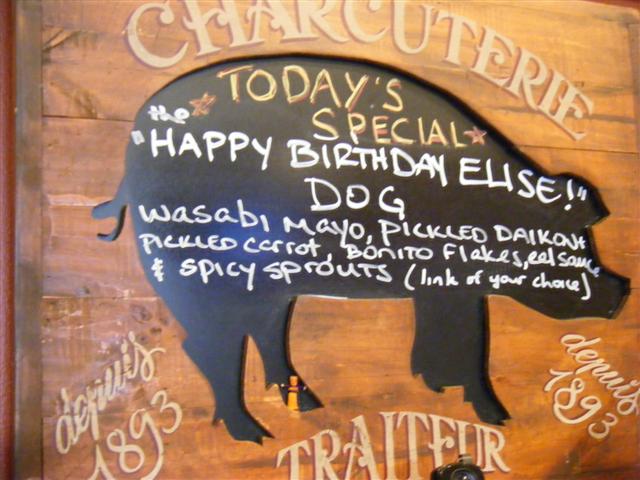 CHARCUTERIE
TODAY'S
SPECIAL
the
"HAPPY BIRTHDAY ELISE!"
DOG
Wasabi Mayo, PICKLED DAIKON &
PICKLED Carrot, Bonito Flakes, eel sauce
& SPICY SPROUTS (link of your choice)
depuis
1893
depuis
1893
TRAITEUR